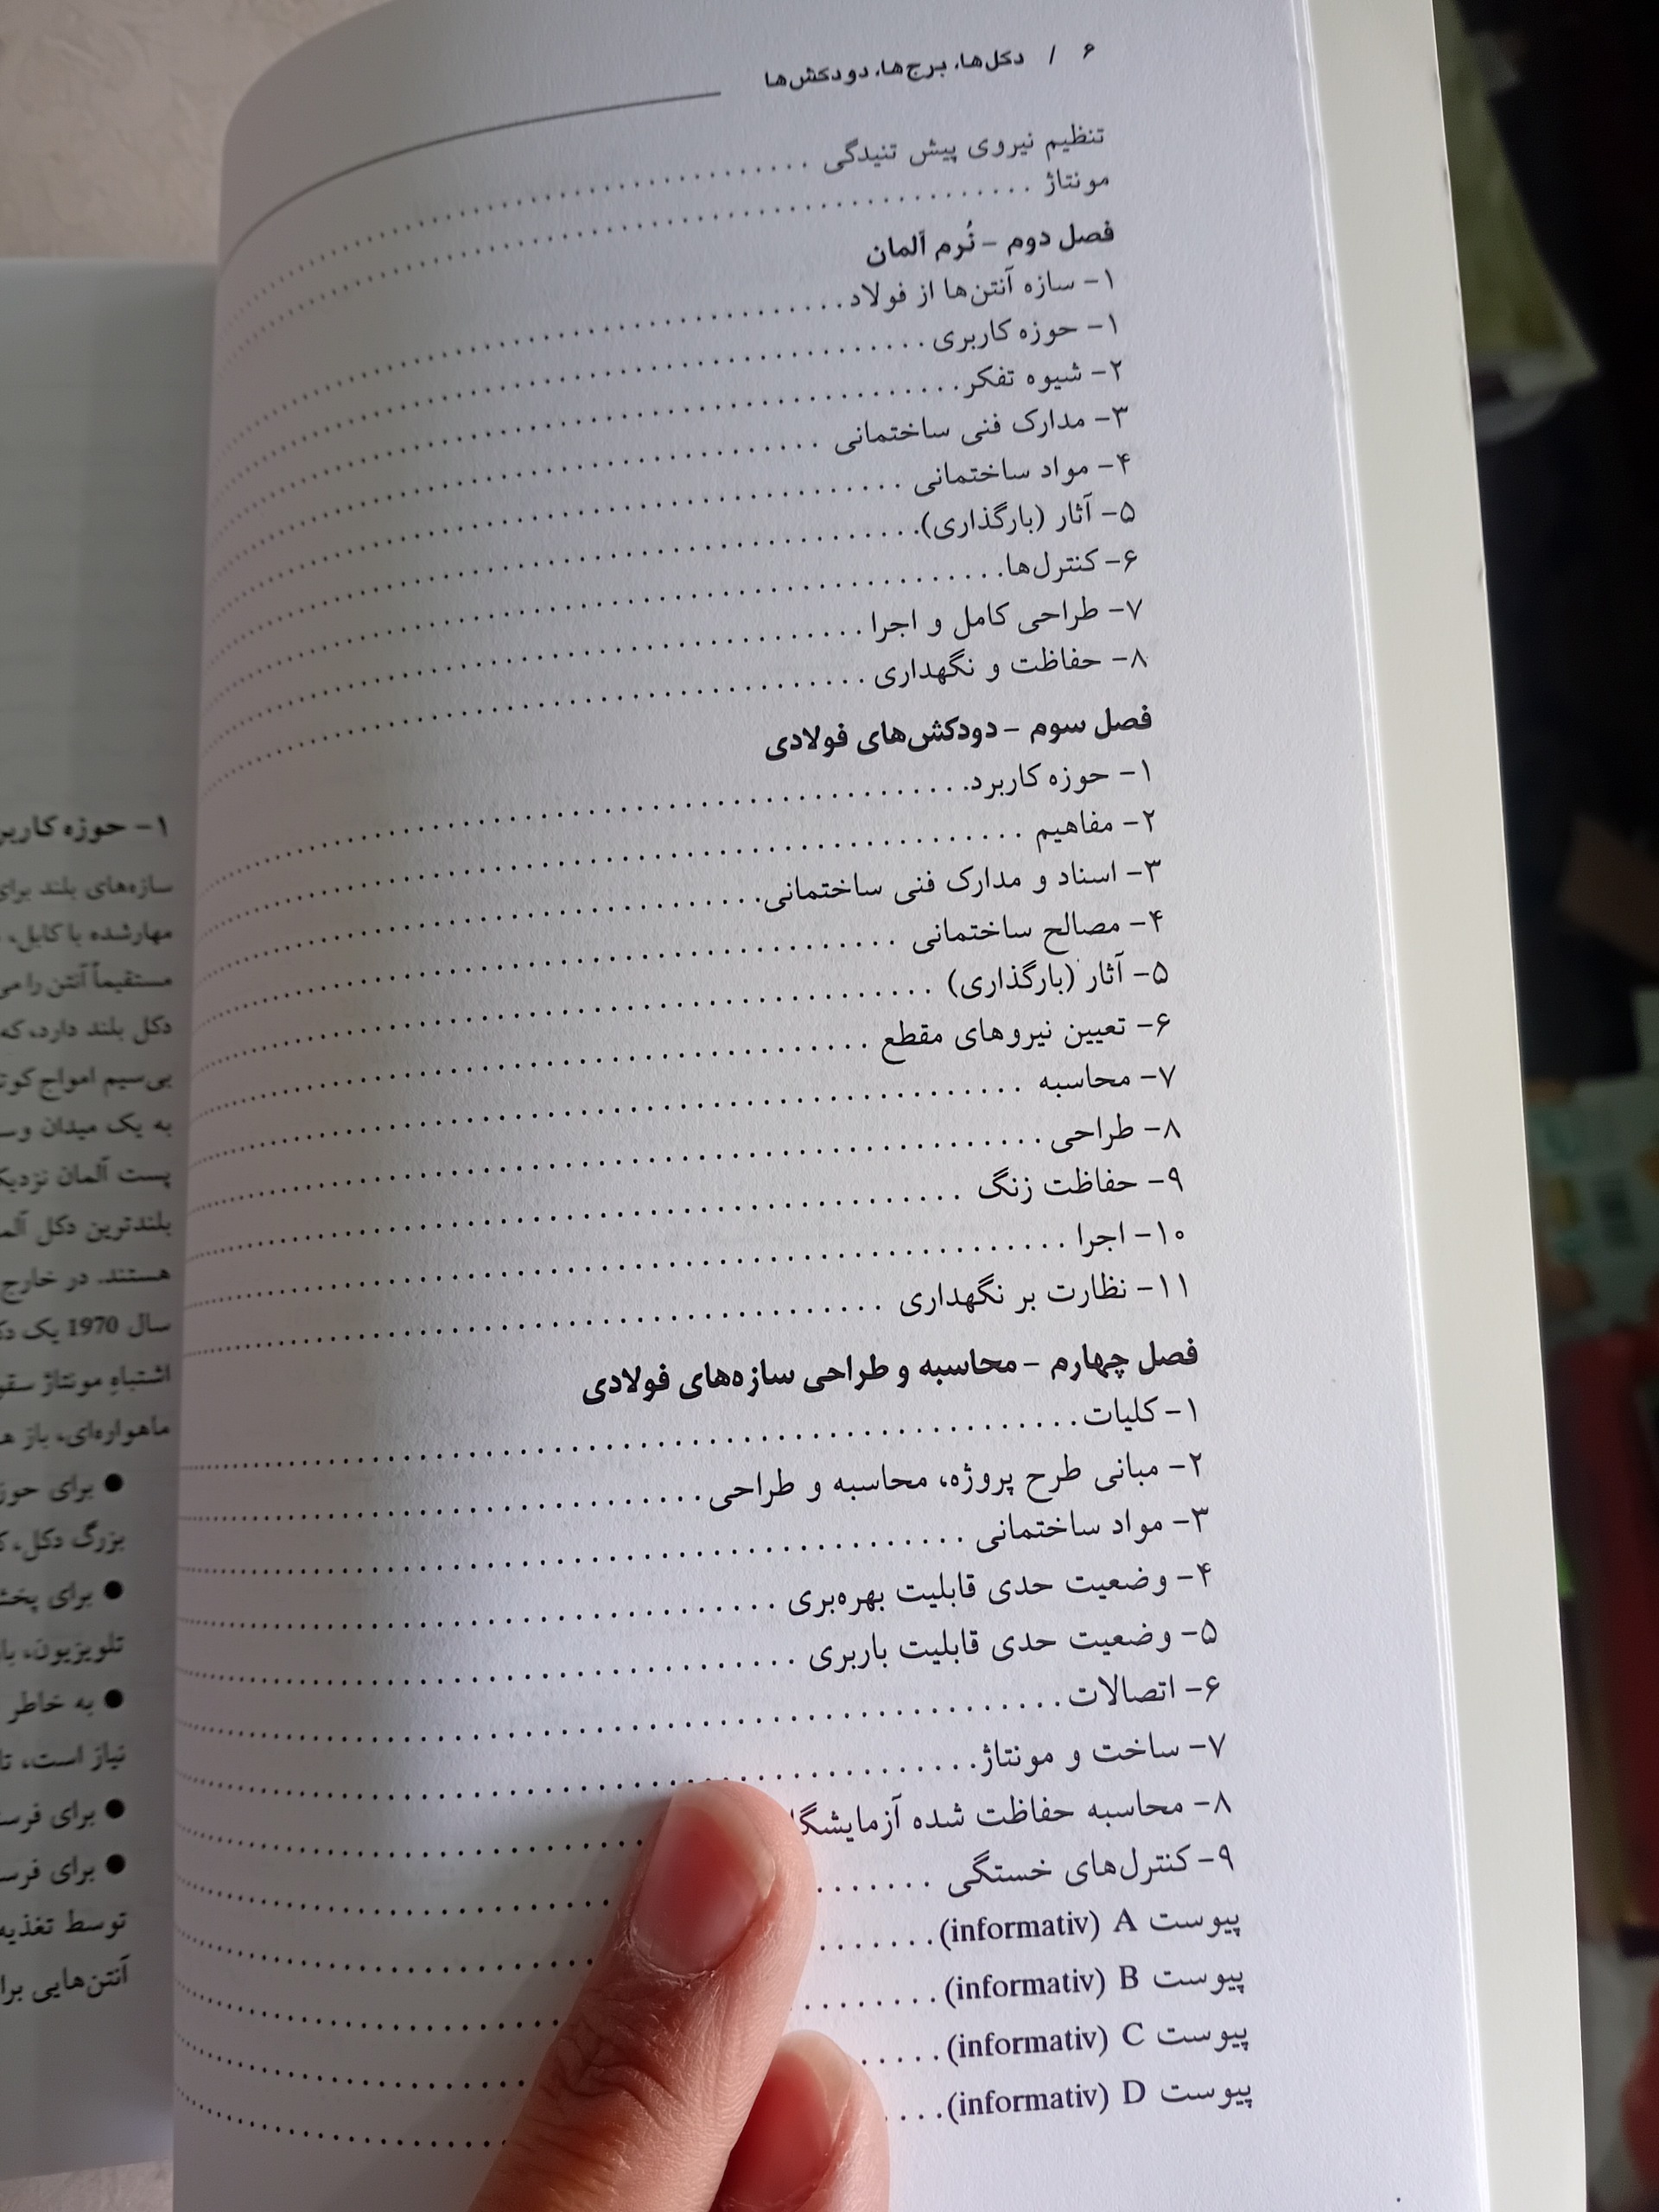 ۶ / دکل‌ها، برج‌ها، دودکش‌ها
تنظیم نیروی پیش تنیدگی
مونتاژ
فصل دوم – نُرم آلمان
۱– سازه آنتن‌ها از فولاد
۱– حوزه کاربری
۲– شیوه تفکر
۳– مدارک فنی ساختمانی
۴– مواد ساختمانی
۵– آثار (بارگذاری)
۶– کنترل‌ها
۷– طراحی کامل و اجرا
۸– حفاظت و نگهداری
فصل سوم – دودکش‌های فولادی
۱– حوزه کاربرد
۲– مفاهیم
۳– اسناد و مدارک فنی ساختمانی
۴– مصالح ساختمانی
۵– آثار (بارگذاری)
۶– تعیین نیروهای مقطع
۷– محاسبه
۸– طراحی
۹– حفاظت زنگ
۱۰– اجرا
۱۱– نظارت بر نگهداری
فصل چهارم – محاسبه و طراحی سازه‌های فولادی
۱– کلیات
۲– مبانی طرح پروژه، محاسبه و طراحی
۳– مواد ساختمانی
۴– وضعیت حدی قابلیت بهره‌بری
۵– وضعیت حدی قابلیت باربری
۶– اتصالات
۷– ساخت و مونتاژ
۸– محاسبه حفاظت شده
۹– کنترل‌های خستگی
پیوست A (informativ)
پیوست B (informativ)
پیوست C (informativ)
پیوست D (informativ)
۱– حوزه
سازه‌های بلند برای
مهارشده با کابل،
مستقیماً آنتن را
دکل بلند دارد، که
بی‌سیم امواج
به یک میدان
پست آلمان
بلندترین دکل
هستند. در خارج
سال 1970 یک
اشتباهِ مونتاژ
ماهواره‌ای، باز
● برای
بزرگ دکل،
● برای
تلویزیون،
● به خاطر
نیاز است،
● برای
● برای
توسط تغذیه
آنتن‌هایی